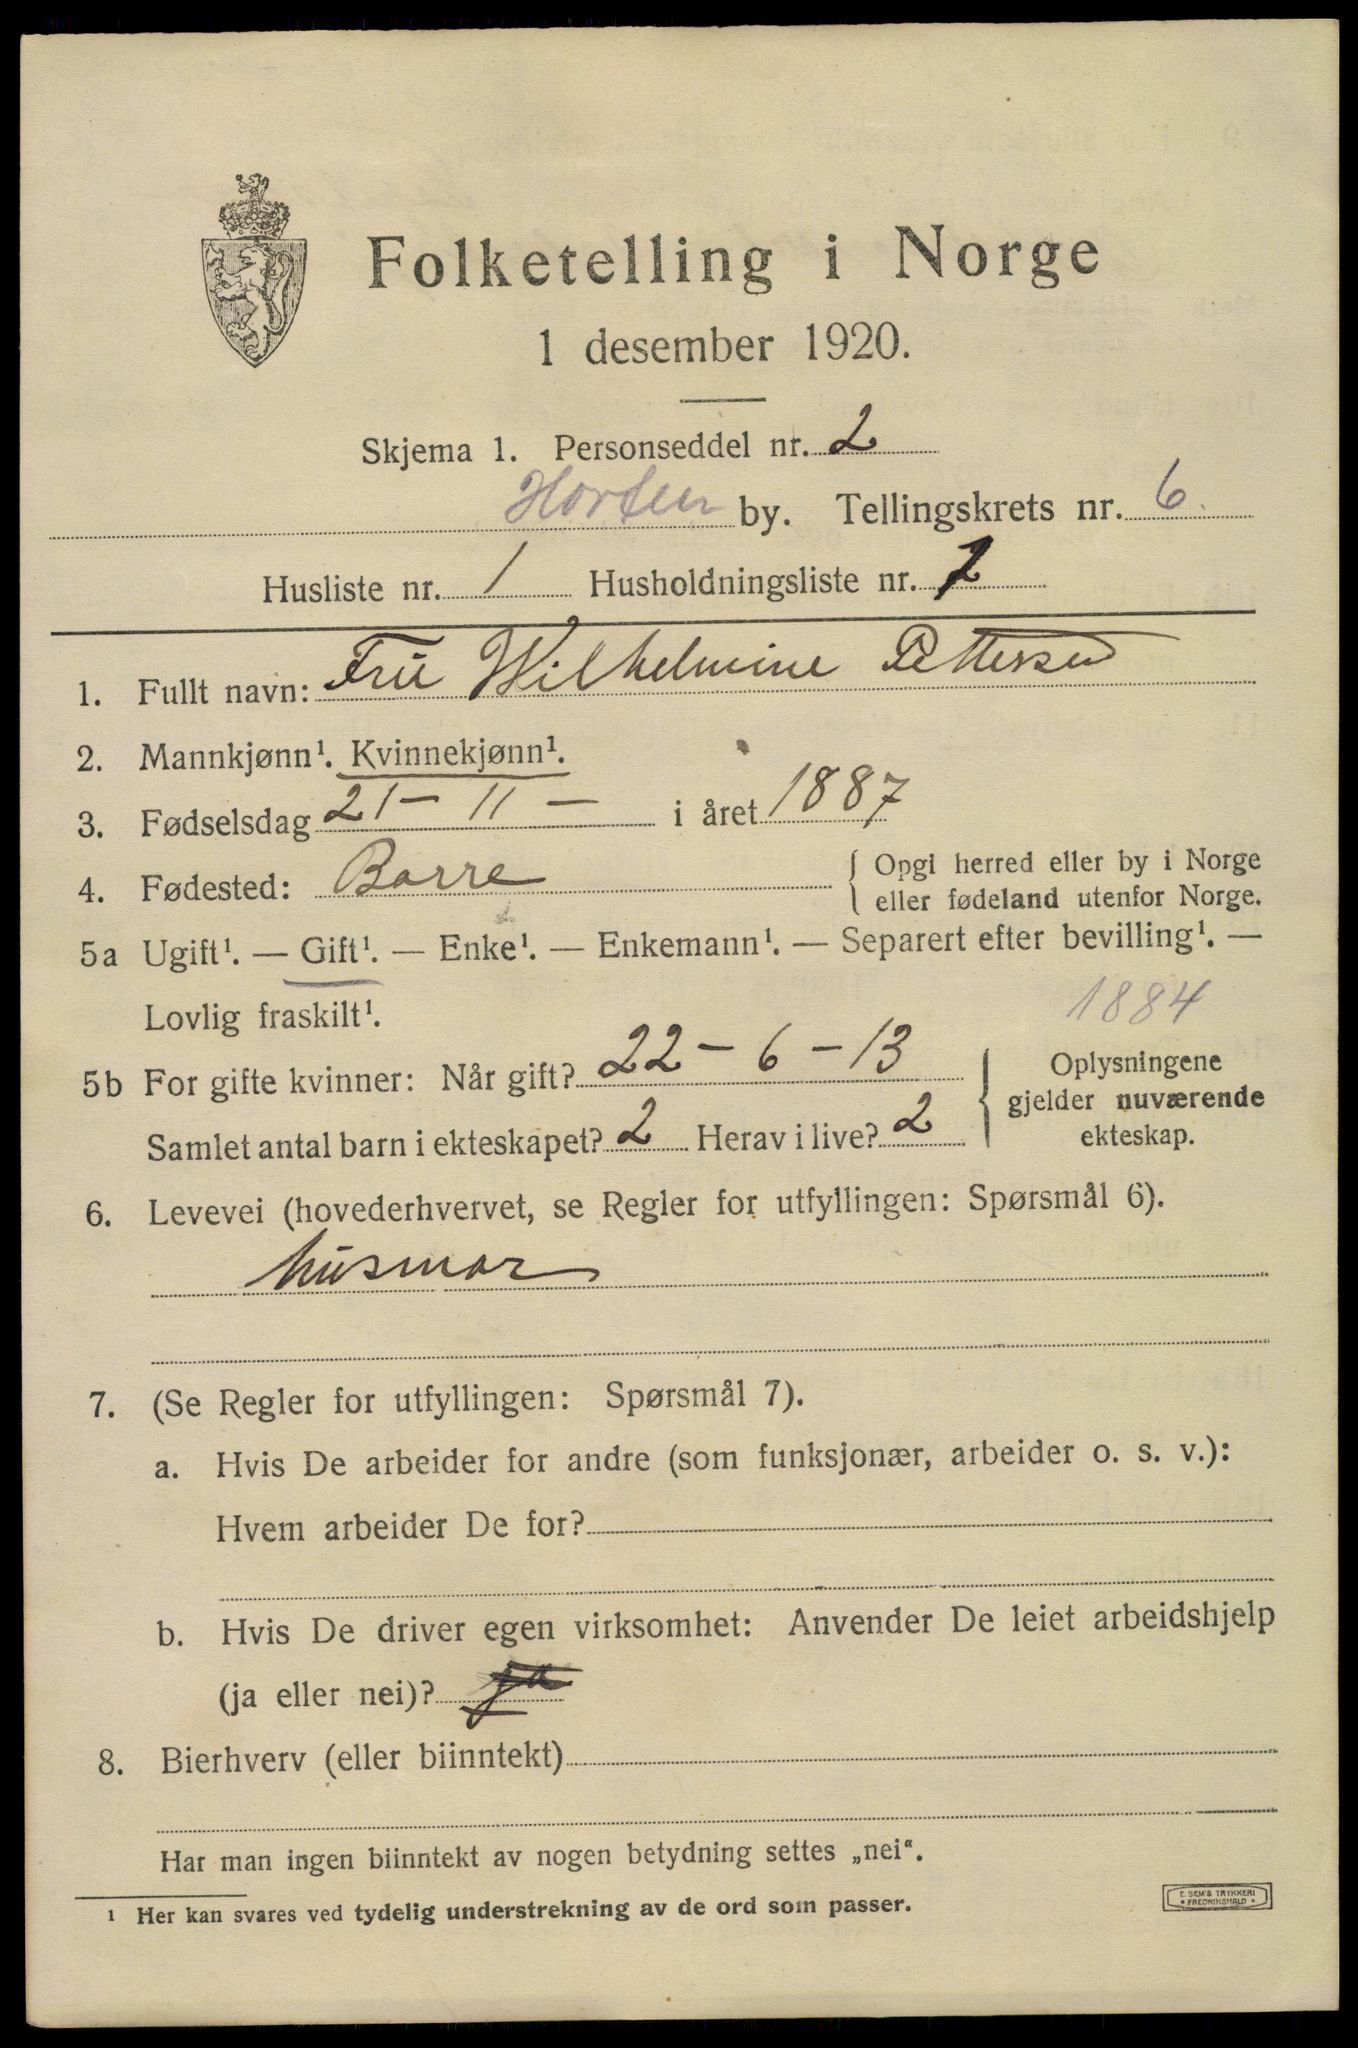 Folketelling i Norge
1 desember 1920.
Skjema 1. Personseddel nr. 2
Horten by. Tellingskrets nr. 6.
Husliste nr. 1 Husholdningsliste nr.
1. Fullt navn: Fru Wilhelmine Pettersen
2. Mannkjønn¹. Kvinnekjønn¹.
3. Fødselsdag 21 — 11 — i året 1887
4. Fødested: Borre { Opgi herred eller by i Norge
eller fødeland utenfor Norge.
5a Ugift¹. — Gift¹. — Enke¹. — Enkemann¹. — Separert efter bevilling¹. —
Lovlig fraskilt¹. 1884
5b For gifte kvinner: Når gift? 22 — 6 — 13 { Oplysningene
gjelder nuværende
Samlet antal barn i ekteskapet? 2 Herav i live? 2 ekteskap.
6. Levevei (hovederhvervet, se Regler for utfyllingen: Spørsmål 6).
husmor
7. (Se Regler for utfyllingen: Spørsmål 7).
a. Hvis De arbeider for andre (som funksjonær, arbeider o. s. v.):
Hvem arbeider De for?
b. Hvis De driver egen virksomhet: Anvender De leiet arbeidshjelp
(ja eller nei)? ja
8. Bierhverv (eller biinntekt)
Har man ingen biinntekt av nogen betydning settes „nei“.
¹ Her kan svares ved tydelig understrekning av de ord som passer.
E. SEM'S TRYKKERI
• FREDRIKSHALD •